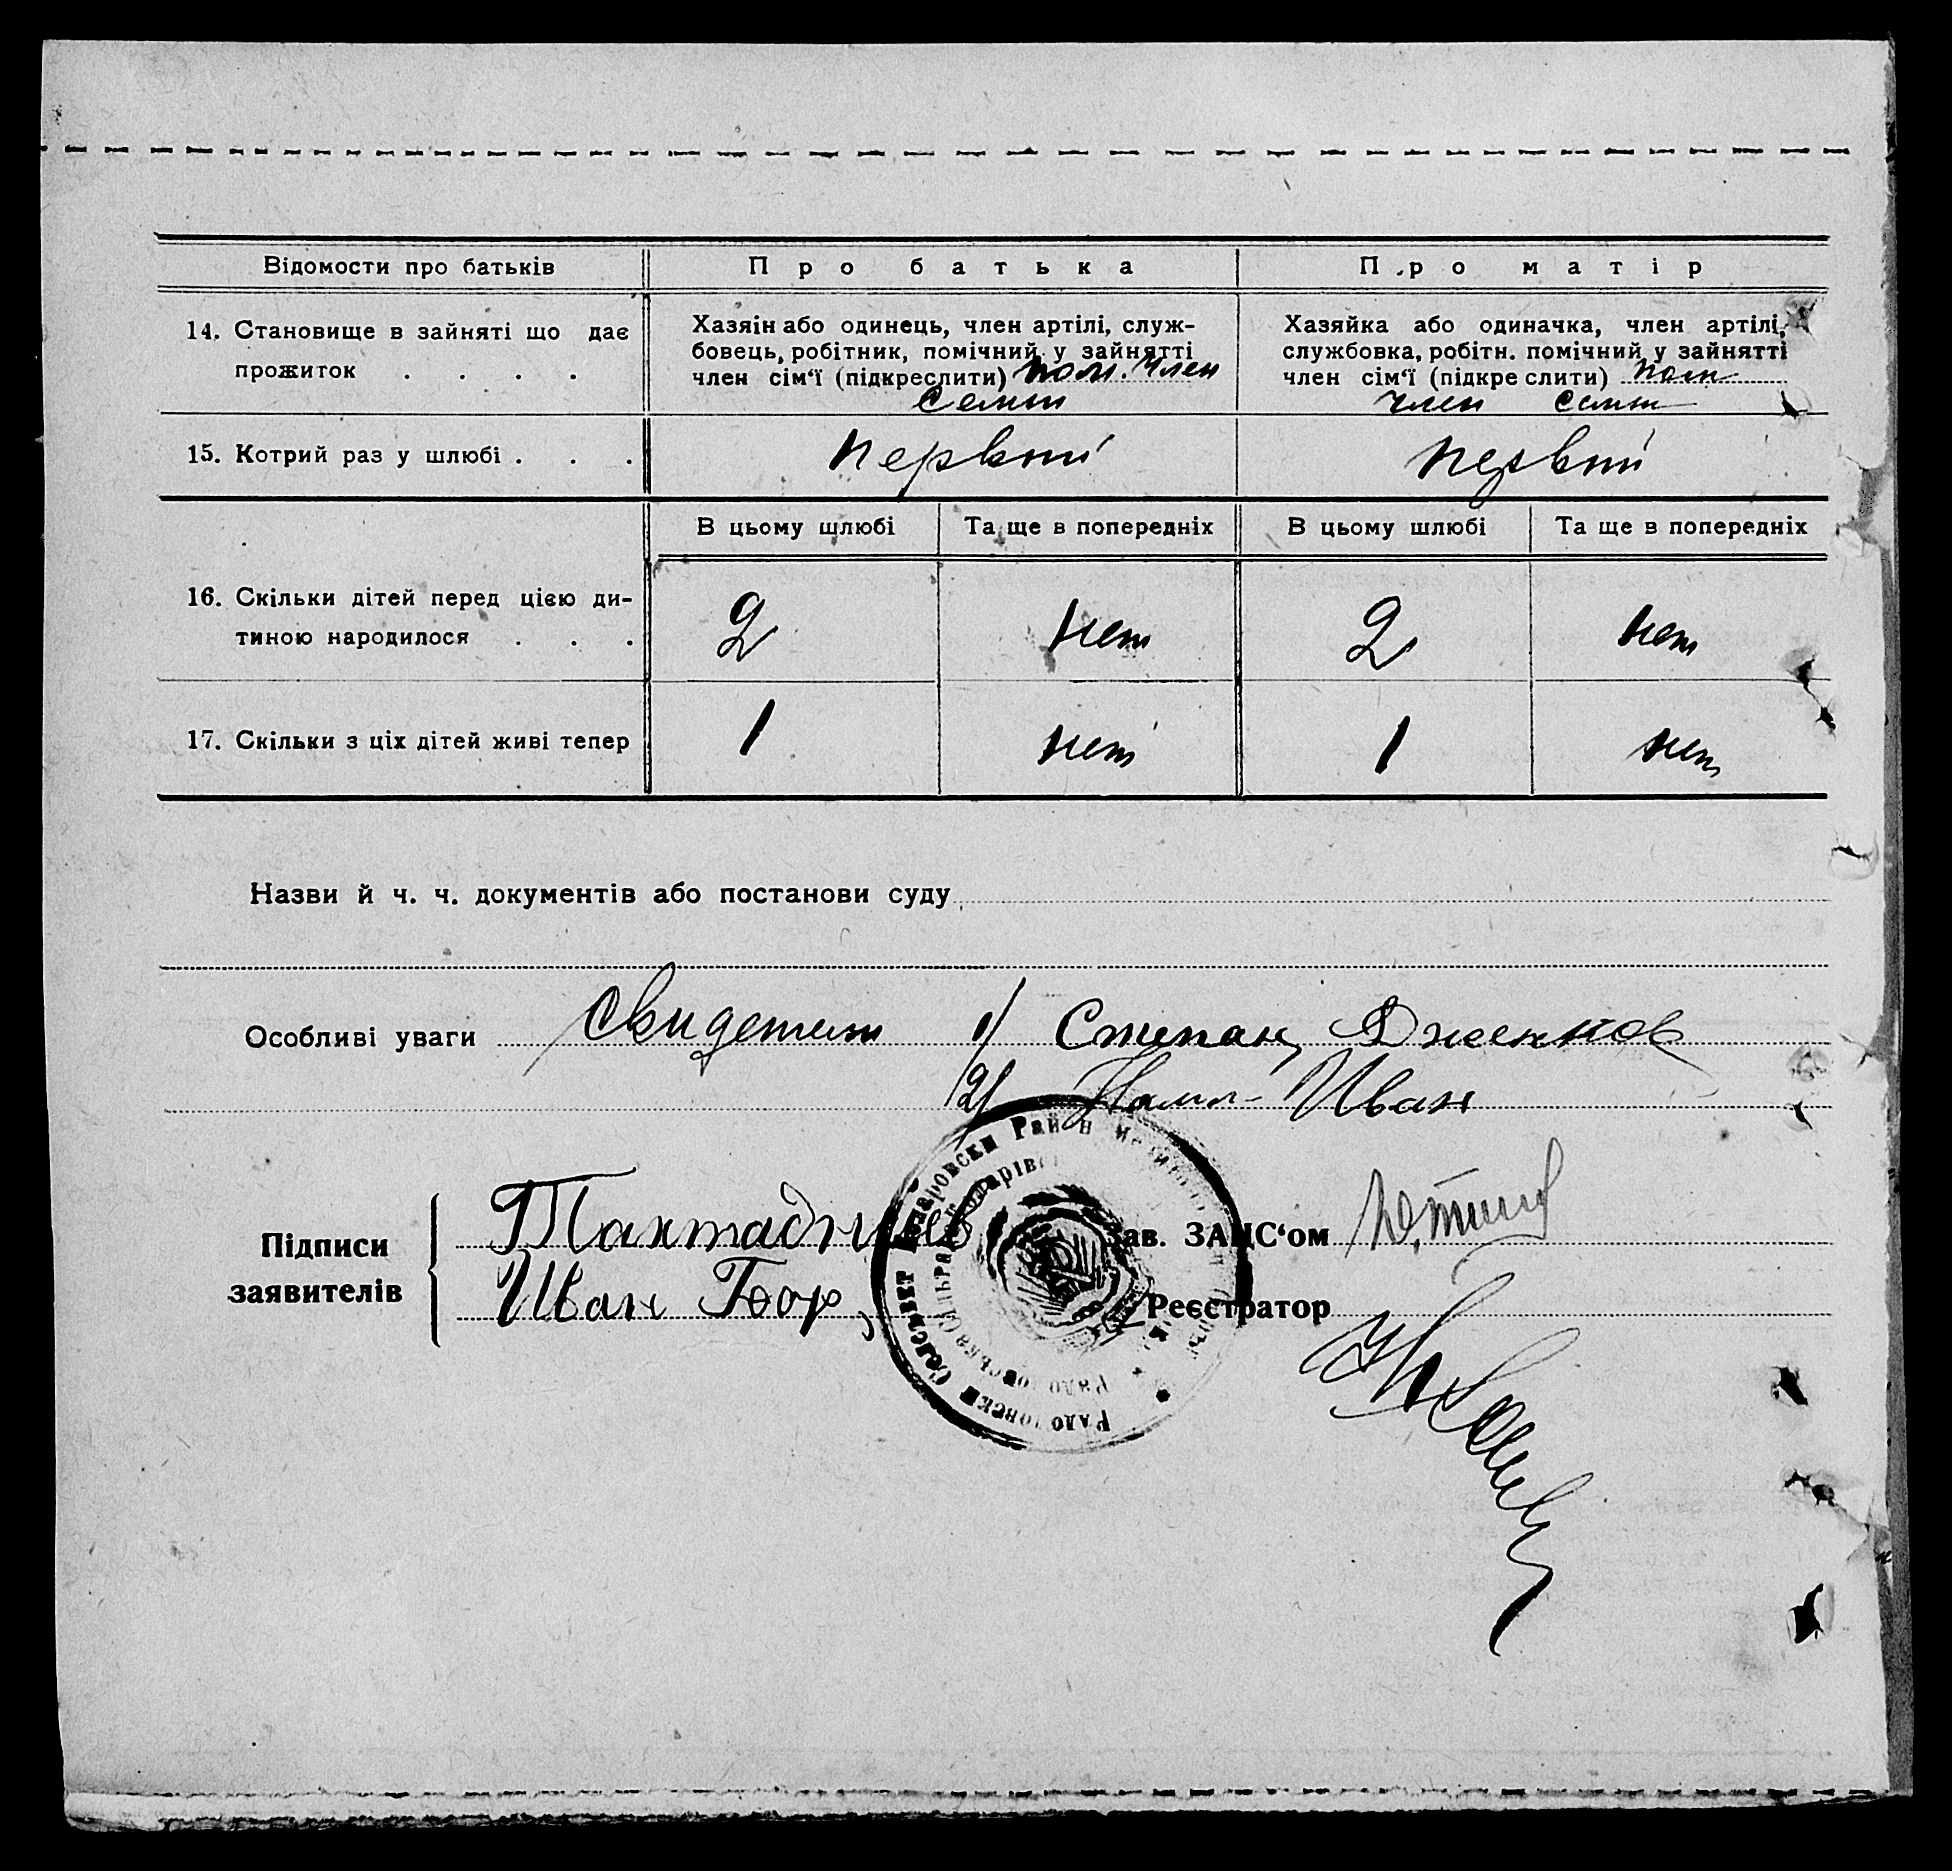 Відомости про батьків
Про батька
Про матір
14. Становище в зайняті що дає прожиток . . . .
Хазяін або одинець, член артілі, служ-
бовець, робітник, помічний у зайнятті
член сім‘ї (підкреслити) пом. член
семьи
Хазяйка або одиначка, член артілі,
службовка, робітн. помічний у зайнятті
член сім‘ї (підкреслити) пом
член семьи
15. Котрий раз у шлюбі . . .
первый
первый
В цьому шлюбі
Та ще в попередніх
В цьому шлюбі
Та ще в попередніх
16. Скільки дітей перед цією ди-
тиною народилося . . .
2
нет
2
нет
17. Скільки з ціх дітей живі тепер
1
нет
1
нет
Назви й ч. ч. документів або постанови суду
Особливі уваги Свидетели 1/ Степан
2/ Иван
Підписи
заявителів
Иван
Зав. ЗАГС‘ом
Реєстратор